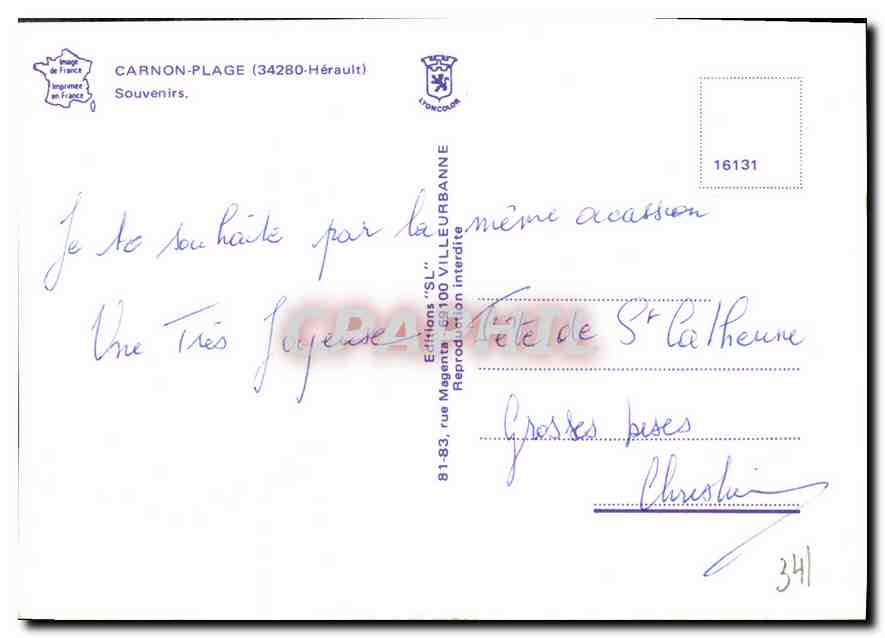 Image
de France
Imprimée
en France
CARNON-PLAGE (34280-Hérault)
Souvenirs.
LYONCOLOR
16131
Je te souhaite par la même ocassion
Une Très Joyeuse Fête de St Catherine
Grosses bises
Editions "SL"
81-83, rue Magenta - 69100 VILLEURBANNE
Reproduction interdite
CPAPHIL
341